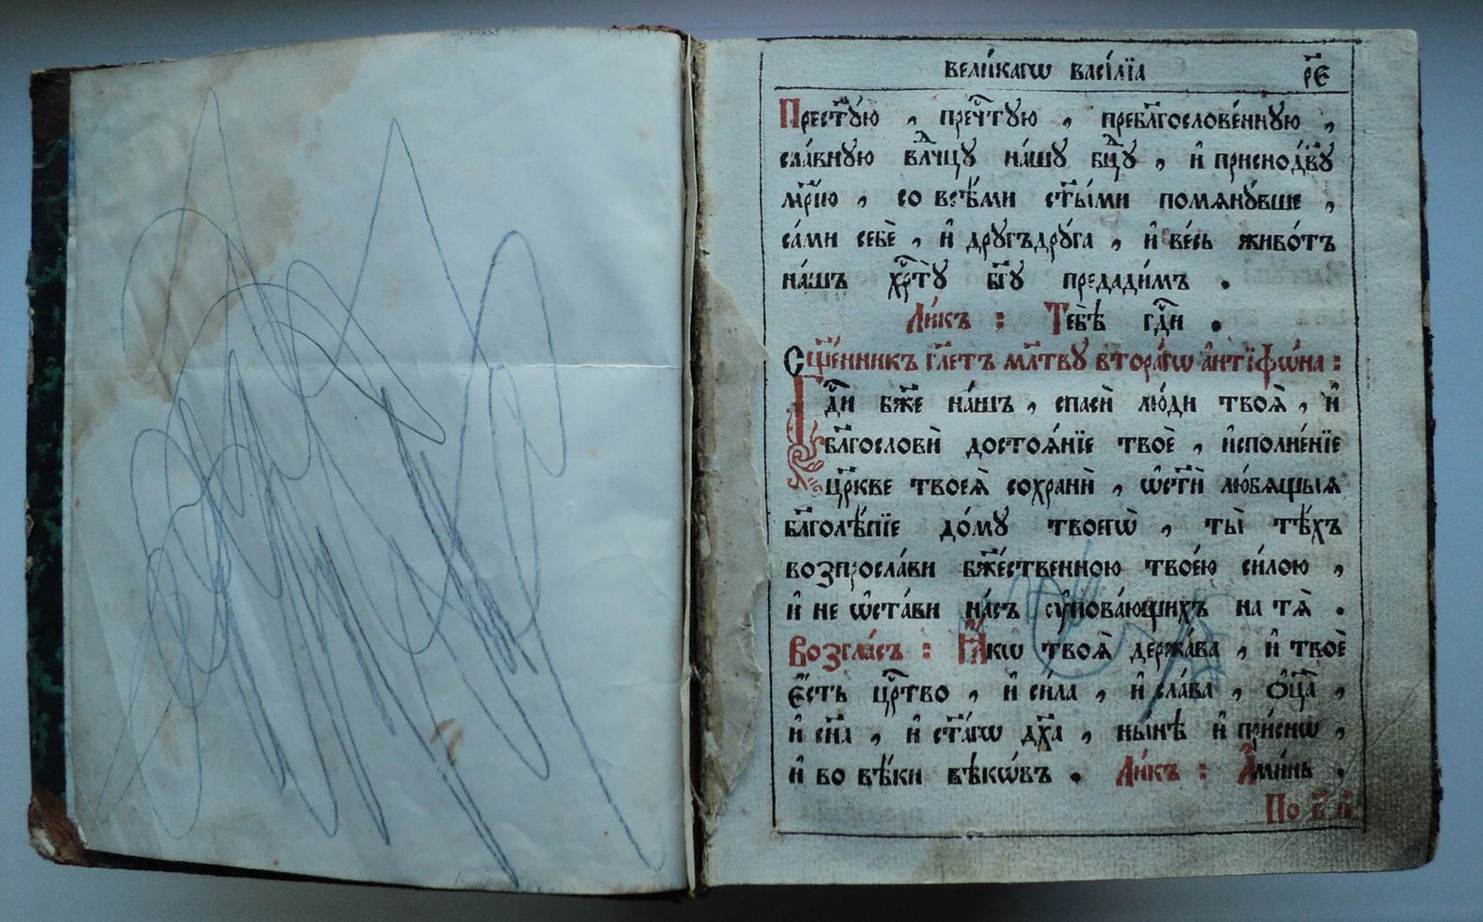 вели́кагѡ васі́лїа р҃є
Прест҃ꙋ́ю , пречⷭ҇тꙋю , пребл҃гослове́ннꙋю ,
сла́внꙋю влⷣчцꙋ на́шꙋ бц҃ꙋ , и҆ приснодв҃ꙋ
мр҃і́ю , со всѣ́ми ст҃ы́ми помѧнꙋ́вше ,
са́ми себѐ , и҆ дрꙋгъдрꙋ́га , и҆ ве́сь живо́тъ
на́шъ хрⷭ҇тꙋ̀ бг҃ꙋ предади́мъ .
Ли́къ : Тебѣ̀ гдⷭ҇и .
Сщ҃е́нникъ гл҃етъ мл҃твꙋ втора́гѡ а҆нтїфѡ́на :
Гдⷭ҇и бж҃е на́шъ , спасѝ лю́ди твоѧ̑ , и҆
бл҃гословѝ достоѧ́нїе твоѐ , и҆сполне́нїе
цр҃кве твоеѧ̀ сохранѝ , ѡ҆ст҃ѝ лю́бѧщыѧ
бл҃голѣ́пїе до́мꙋ твоегѡ̀ , ты̀ тѣ́хъ
возпросла́ви бж҃е́ственною твое́ю си́лою ,
и҆ не ѡ҆ста́ви на́съ ᲂу҆пова́ющихъ на тѧ̀ .
Возгла́съ : Ꙗ҆́кѡ твоѧ̀ держа́ва , и҆ твоѐ
є҆́сть црⷭ҇тво , и҆ си́ла , и҆ сла́ва , ѻ҆ц҃а̀ ,
и҆ сн҃а , и҆ ст҃а́гѡ дх҃а , ны́нѣ и҆ при́снѡ ,
и҆ во вѣ́ки вѣкѡ́въ . Ли́къ : А҆ми́нь .
По в҃